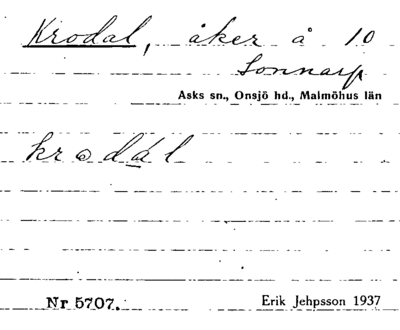 Krodal, åker å 10
Sonnarp
Asks sn., Onsjö hd., Malmöhus län
krodál
Nr 5707.
Erik Jehpsson 1937